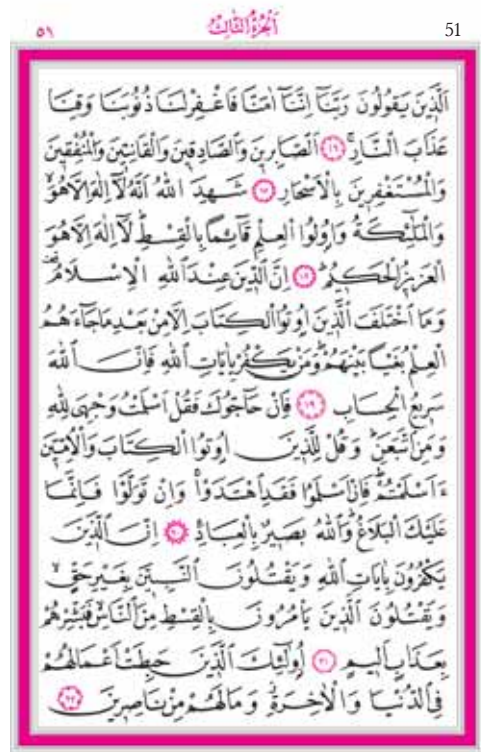 ٥١ اَلْجُزْءُ الثَّالِثُ 51
اَلَّذٖينَ يَقُولُونَ رَبَّنَٓا اِنَّنَٓا اٰمَنَّا فَاغْفِرْ لَنَا ذُنُوبَنَا وَقِنَا
عَذَابَ النَّارِۚ ﴿١٦﴾ اَلصَّابِرٖينَ وَالصَّادِقٖينَ وَالْقَانِتٖينَ وَالْمُنْفِقٖينَ
وَالْمُسْتَغْفِرٖينَ بِالْاَسْحَارِ ﴿١٧﴾ شَهِدَ اللّٰهُ اَنَّهُ لَٓا اِلٰهَ اِلَّا هُوَۙ
وَالْمَلٰٓئِكَةُ وَاُو۬لُوا الْعِلْمِ قَٓائِمًا بِالْقِسْطِۜ لَٓا اِلٰهَ اِلَّا هُوَ
الْعَزٖيزُ الْحَكٖيمُۜ ﴿١٨﴾ اِنَّ الدّٖينَ عِنْدَ اللّٰهِ الْاِسْلَامُ۠
وَمَا اخْتَلَفَ الَّذٖينَ اُو۫تُوا الْكِتَابَ اِلَّا مِنْ بَعْدِ مَا جَٓاءَهُمُ
الْعِلْمُ بَغْيًا بَيْنَهُمْۜ وَمَنْ يَكْفُرْ بِاٰيَاتِ اللّٰهِ فَاِنَّ اللّٰهَ
سَرٖيعُ الْحِسَابِ ﴿١٩﴾ فَاِنْ حَٓاجُّوكَ فَقُلْ اَسْلَمْتُ وَجْهِيَ لِلّٰهِ
وَمَنِ اتَّبَعَنِۜ وَقُلْ لِلَّذٖينَ اُو۫تُوا الْكِتَابَ وَالْاُمِّيّٖنَ
ءَاَسْلَمْتُمْۜ فَاِنْ اَسْلَمُوا فَقَدِ اهْتَدَوْاۚ وَاِنْ تَوَلَّوْا فَاِنَّمَا
عَلَيْكَ الْبَلَاغُۜ وَاللّٰهُ بَصٖيرٌ بِالْعِبَادِ۟ ﴿٢٠﴾ اِنَّ الَّذٖينَ
يَكْفُرُونَ بِاٰيَاتِ اللّٰهِ وَيَقْتُلُونَ النَّبِيّٖنَ بِغَيْرِ حَقٍّۙ
وَيَقْتُلُونَ الَّذٖينَ يَأْمُرُونَ بِالْقِسْطِ مِنَ النَّاسِۙ فَبَشِّرْهُمْ
بِعَذَابٍ اَلٖيمٍ ﴿٢١﴾ اُو۬لٰٓئِكَ الَّذٖينَ حَبِطَتْ اَعْمَالُهُمْ
فِي الدُّنْيَا وَالْاٰخِرَةِۘ وَمَا لَهُمْ مِنْ نَاصِرٖينَ ﴿٢٢﴾